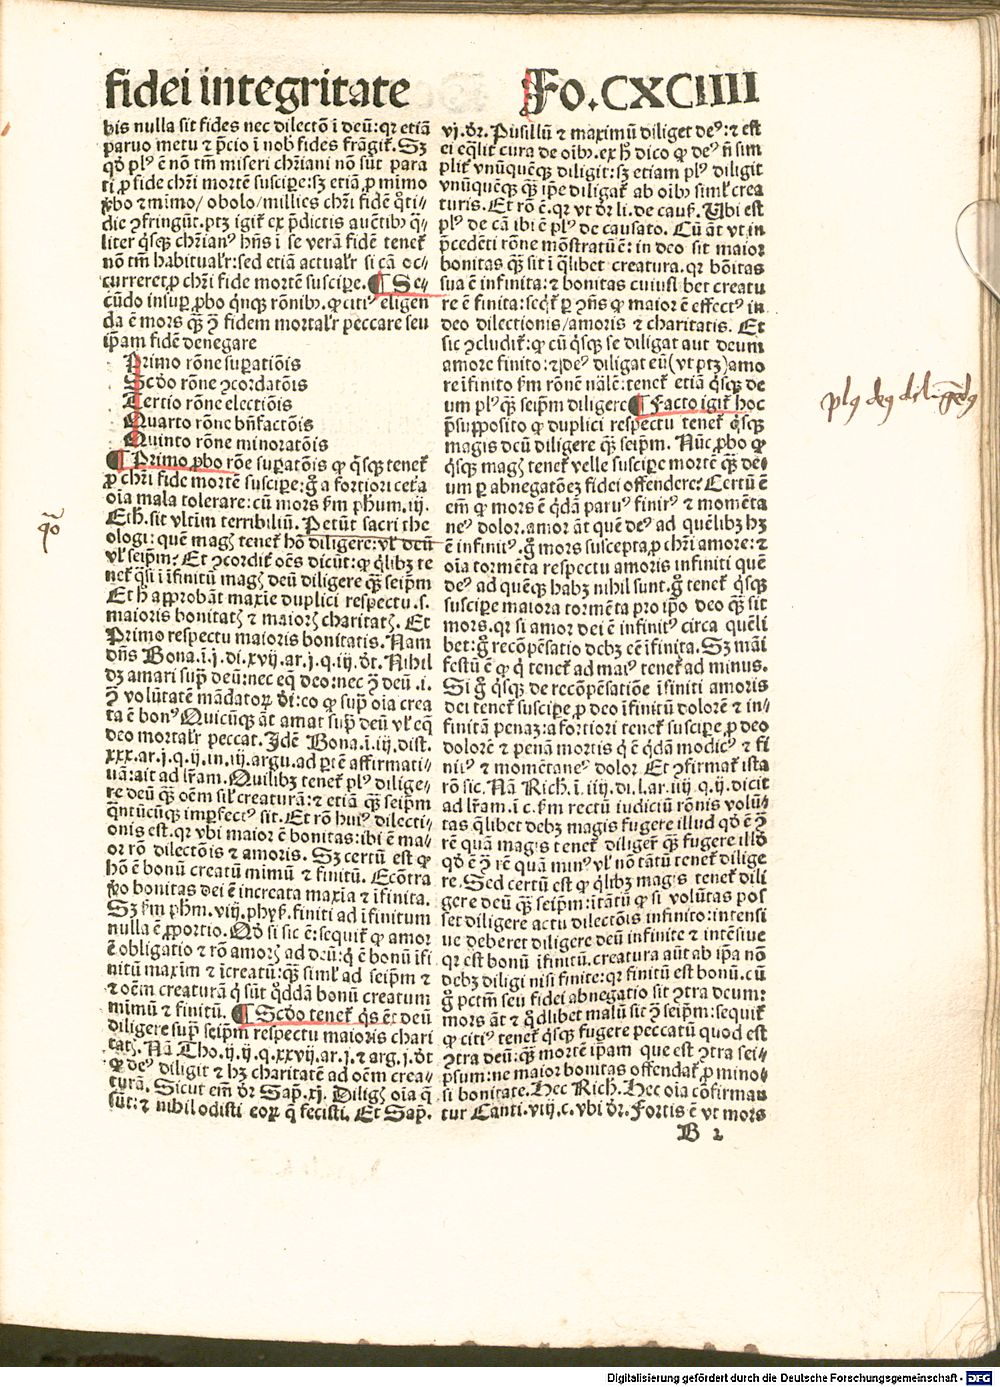 fidei integritate
Fo.CXCIIII
bis nulla sit fides nec dilectō ī deū: qꝛ etiā
paruo metu ⁊ p̄cio ī nob̄ fides frāgit̄. Sꝫ
qd̓ plꝰ ē nō tm̄ miseri chr̄iani nō sūt para
ti ꝓ fide chr̄i mortē suscipe: sꝫ etiā ꝓ mimo
ꝟbo ⁊ mimo/ obolo/ millies chr̄i fidē q̄ti-
die ꝯfringūt. ptꝫ igit̄ ex p̄dictis auētibꝰ q̄-
liter q̄sqꝫ chr̄ianꝰ hn̄s ī se verā fidē tenet̄
nō tm̄ habitual'r: sed etiā actual'r si cā oc-
curreret ꝓ chr̄i fide mortē suscipe. ¶ Se-
cūdo insup ꝓbo q̄nqꝫ rōnibꝰ. ꝙ citiꝰ eligen
da ē mors qꝫ̄ ꝯ̄ fidem mortal'r peccare seu
ip̄am fidē denegare
Primo rōne supatiōis
Scd̓o rōne ꝯcordatōis
Tertio rōne electiōis
Quarto rōne bn̄factōis
Quinto rōne minoratōis
¶ Primo ꝓbo rōe supatōis ꝙ q̄sqꝫ tenet̄
ꝓ chr̄i fide mortē suscipe: g̊ a fortiori cet̄a
oīa mala tolerare: cū mors fm̄ phum. iij.
Eth. sit vltim̄ terribiliū. Petūt sacri the
ologi: quē magꝭ tenet̄ hō diligere: vl̓ deū
vl̓ seipm̄? Et ꝯcordit̄ oēs dicūt: ꝙ q̄libꝫ te
net̄ q̄si ī īfinitū magꝭ deū diligere qꝫ̄ seipm̄
Et h̄ approbāt maxīe duplici respectu. s.
maioris bonitatꝭ ⁊ maiorꝭ charitatꝭ. Et
Primo respectu maioris bonitatis. Nam
dn̄s Bona. ī. j. di. xvij. ar. j. q. iij. d̓t. Nihil
dꝫ amari sup̄ deū: nec eq̄ deo: nec ꝯ̄ deū .i.
ꝯ̄ volūtatē mādatoꝝ d̓i: eo ꝙ sup̄ oīa crea
ta ē bonꝰ Quicūqꝫ āt amat sup̄ deū vl̓ eq̄
deo mortal'r peccat. Idē Bona. ī. iij. dist.
xxx. ar. j. q. ij. in. iij. argu. ad ptē affirmati-
uā: ait ad lr̄am. Quilibꝫ tenet̄ plꝰ dilige-
re deū qꝫ̄ oēm sil̓ creaturā: ⁊ etiā qꝫ̄ seipm̄
q̄ntūcūqꝫ imꝑfectꝰ sit. Et rō huiꝰ dilecti-
onis est. qꝛ vbi maior ē bonitas: ibi ē ma-
ior rō dilectōis ⁊ amoris. Sꝫ certū est ꝙ
hō ē bonū creatū mimū ⁊ finitū. Ecōtra
ꝟo bonitas dei ē increata maxīa ⁊ īfinita.
Sꝫ fm̄ phm̄. viij. phyẜ. finiti ad īfinitum
nulla ē ꝓportio. Qd̓ si sic ē: sequit̄ ꝙ amor
ē obligatio ⁊ rō amorꝭ ad deū: q̇ ē bonū īfi
nitū maxim̄ ⁊ īcreatū: qꝫ̄ siml̓ ad seipm̄ ⁊
⁊ oēm creaturā q̇ sūt q̊ddā bonū creatum
mimū ⁊ finitū. ¶ Scd̓o tenet̄ q̇s ēt deū
diligere sup̄ seipm̄ respectu maioris chari
tatꝭ. Nā Tho. ij. ij. q. xxvij. ar. j. ⁊ arg. j. d̓t
ꝙ deꝰ diligit ⁊ hꝫ charitatē ad oēm crea-
turā. Sicut em̄ d̓r Sap̄. xj. Diligꝭ oīa q̄
sūt: ⁊ nihil odisti eoꝝ q̄ fecisti. Et Sap̄.
vj. d̓r. Pusillū ⁊ maximū diliget deꝰ: ⁊ est
ei eq̄lit̄ cura de oībꝰ. ex h̊ dico ꝙ deꝰ n̄ sim
plit̄ vnūquēqꝫ diligit: sꝫ etiam plꝰ diligit
vnūquēqꝫ qꝫ̄ ip̄e diligat̄ ab oībꝰ siml̓ crea
turis. Et rō ē. qꝛ vt d̓r li. de cauẜ. Vbi est
plꝰ de cā ibi ē plꝰ de causato. Cū āt vt in
p̄cedēti rōne mōstratū ē: in deo sit maior
bonitas qꝫ̄ sit ī q̄libet creatura. qꝛ bōitas
sua ē infinita: ⁊ bonitas cuiuslibet creatu
re ē finita: seq̄t̄ ꝑ ꝯn̄s ꝙ maior ē effectꝰ in
deo dilectionis/amoris ⁊ charitatis. Et
sic ꝯcludit̄: ꝙ cū q̄sqꝫ se diligat aut deum
amore finito: ⁊ deꝰ diligat eū (vt ptꝫ) amo
re īfinito fm̄ rōnē nālē: tenet̄ etiā q̄sqꝫ de
um plꝰ qꝫ̄ seipm̄ diligere ¶ Facto igit̄ hoc
p̄supposito ꝙ duplici respectu tenet̄ q̄sqꝫ
magis deū diligere qꝫ̄ seipm̄. Nūc ꝓbo ꝙ
q̄sqꝫ magꝭ tenet̄ velle suscipe mortē qꝫ̄ de-
um ꝑ abnegatōeꝫ fidei offendere? Certū ē
em̄ ꝙ mors ē q̇dā paruꝰ finitꝰ ⁊ momēta
neꝰ dolor. amor āt quē deꝰ ad quēlibꝫ hꝫ
ē infinitꝰ. g̊ mors suscepta ꝓ chr̄i amore: ⁊
oīa tormēta respectu amoris infiniti quē
deꝰ ad quēqꝫ habꝫ nihil sunt. g̊ tenet̄ q̄sqꝫ
suscipe maiora tormēta pro ip̄o deo qꝫ̄ sit
mors. qꝛ si amor dei ē infinitꝰ circa quēli
bet: g̊ recōpēsatio debꝫ eē īfinita. Sꝫ māi
festū ē ꝙ q̇ tenet̄ ad maiꝰ tenet̄ ad minus.
Si g̊ q̄sqꝫ de recōpēsatiōe īfiniti amoris
dei tenet̄ suscipe ꝓ deo īfinitū dolorē ⁊ in-
finitā penaꝫ: a fortiori tenet̄ suscipe ꝓ deo
dolorē ⁊ penā mortis q̇ ē q̇dā modicꝰ ⁊ fi
nitꝰ ⁊ momētaneꝰ dolor Et ꝯfirmat̄ ista
rō sic. Nā Rich. ī. iiij. di. l. ar. iiij q. ij. dicit
ad lr̄am. ī c. fm̄ rectū iudiciū rōnis volū-
tas q̄libet debꝫ magis fugere illud qd̓ ē ꝯ̄
rē quā magis tenet̄ diliger̄ qꝫ̄ fugere illd̓
qd̓ ē ꝯ̄ rē quā minꝰ vl̓ nō tātū tenet̄ dilige
re. Sed certū est ꝙ q̄libꝫ magis tenet̄ dili
gere deū qꝫ̄ seipm̄: ītātū ꝙ si volūtas pos
set diligere actu dilectōis infinito: intensi
ue deberet diligere deū infinite ⁊ intēsiue
qꝛ est bonū īfinitū. creatura aūt ab ip̄a nō
debꝫ diligi nisi finite: qꝛ finitū est bonū. cū
g̊ pctm̄ seu fidei abnegatio sit ꝯtra deum:
mors āt ⁊ q̊dlibet malū sit ꝯ̄ seipm̄: sequit̄
ꝙ citiꝰ tenet̄ q̄sqꝫ fugere peccatū quod est
ꝯtra deū: qꝫ̄ mortē ip̄am que est ꝯtra sei-
psum: ne maior bonitas offendat̄ ꝓ mino-
ri bonitate. Hec Rich. Hec oīa cōfirman
tur Canti. viij. c. vbi d̓r. Fortis ē vt mors
B 2
q̄o
plꝰ deꝰ diligēdꝰ
Digitalisierung gefördert durch die Deutsche Forschungsgemeinschaft - DFG